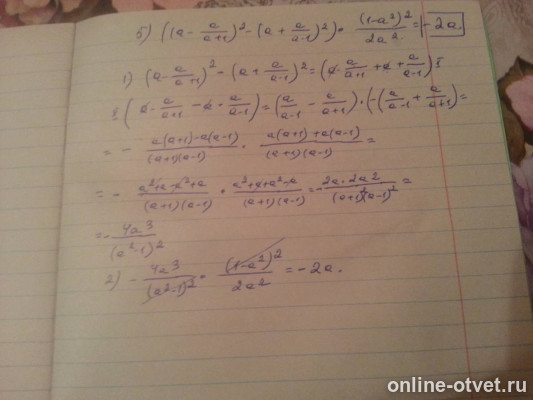 5) ((a - a/(a+1))² - (a + a/(a-1))²) · (1-a²)²/2a² = -2a.
1) (a - a/(a+1))² - (a + a/(a-1))² = (a - a/(a+1) + a + a/(a-1)) ·
· (a - a/(a+1) - a - a/(a-1)) = (a/(a-1) - a/(a+1)) · (-(a/(a-1) + a/(a+1)) =
= - (a(a+1)-a(a-1))/((a+1)(a-1)) · (a(a+1)+a(a-1))/((a+1)(a-1)) =
= - (a²+a-a²+a)/((a+1)(a-1)) · (a²+a+a²-a)/((a+1)(a-1)) = - (2a·2a2)/((a+1)²(a-1)²) =
= - 4a3/(a²-1)²
2) - 4a3/(a²-1)² · (1-a²)²/2a² = -2a.
online-otvet.ru